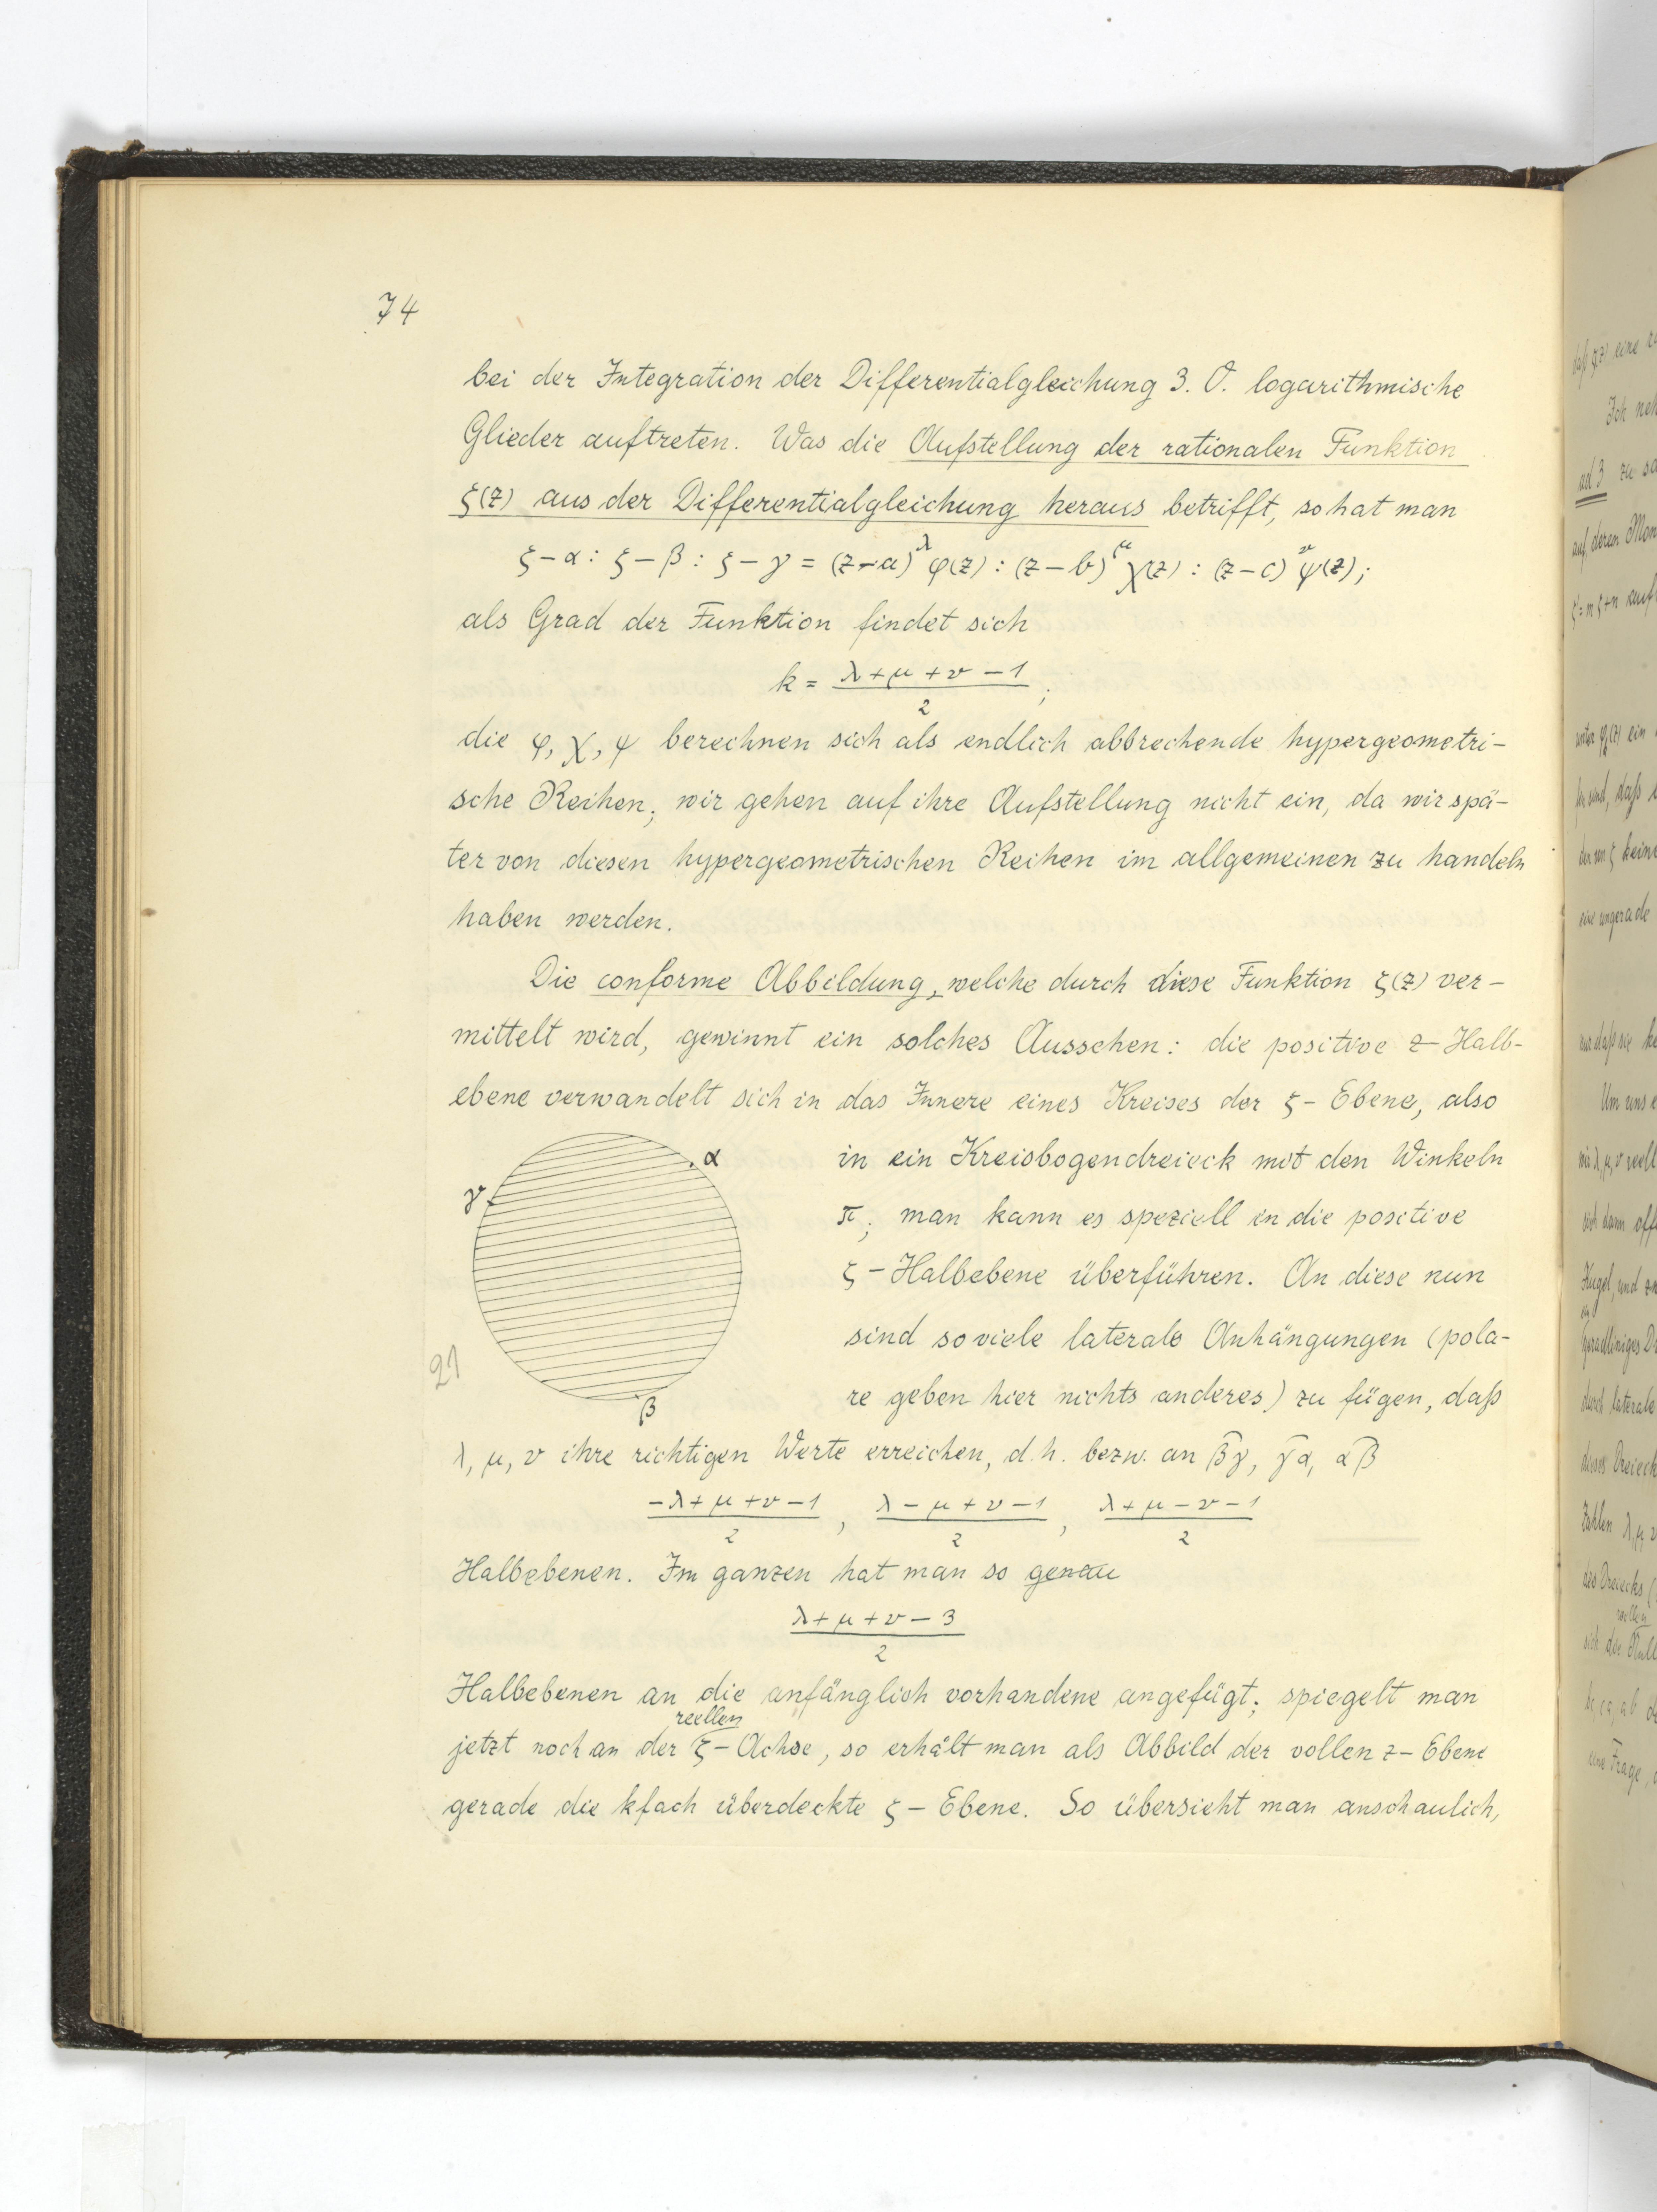 74
bei der Integration der Differentialgleichung 3. O. logarithmische
Glieder auftreten. Was die Aufstellung der rationalen Funktion
ζ(z) aus der Differentialgleichung heraus betrifft, so hat man
ζ-α : ζ-β : ζ-γ = (z-a)^λ φ(z) : (z-b)^μ χ(z) : (z-c)^ν ψ(z);
als Grad der Funktion findet sich
k = (λ+μ+ν-1)/2 ;
die φ, χ, ψ berechnen sich als endlich abbrechende hypergeometri-
sche Reihen; wir gehen auf ihre Aufstellung nicht ein, da wir spä-
ter von diesen hypergeometrischen Reihen im allgemeinen zu handeln
haben werden.
Die conforme Abbildung, welche durch diese Funktion ζ(z) ver-
mittelt wird, gewinnt ein solches Aussehen: die positive z-Halb-
ebene verwandelt sich in das Innere eines Kreises der ζ-Ebene, also
in ein Kreisbogendreieck mit den Winkeln
π; man kann es speziell in die positive
ζ-Halbebene überführen. An diese nun
sind soviele laterale Anhängungen (pola-
re geben hier nichts anderes) zu fügen, daß
α
γ
β
21
λ, μ, ν ihre richtigen Werte erreichen, d.h. bezw. an β͡γ, γ͡α, α͡β
(-λ+μ+ν-1)/2 , (λ-μ+ν-1)/2 , (λ+μ-ν-1)/2
Halbebenen. Im ganzen hat man so genau
(λ+μ+ν-3)/2
Halbebenen an die anfänglich vorhandene angefügt; spiegelt man
reellen
jetzt noch an der ζ-Achse, so erhält man als Abbild der vollen z-Ebene
gerade die kfach überdeckte ζ-Ebene. So übersieht man anschaulich,